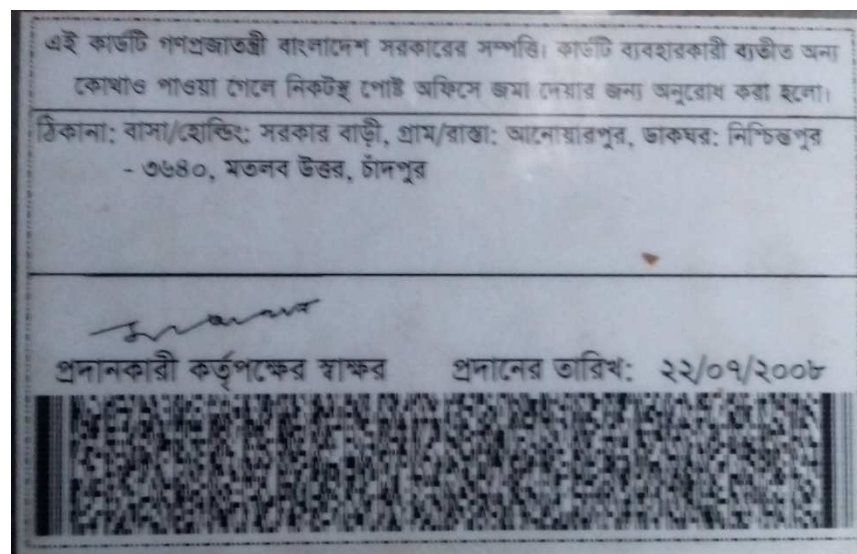 এই কার্ডটি গণপ্রজাতন্ত্রী বাংলাদেশ সরকারের সম্পত্তি। কার্ডটি ব্যবহারকারী ব্যতীত অন্য
কোথাও পাওয়া গেলে নিকটস্থ পোষ্ট অফিসে জমা দেয়ার জন্য অনুরোধ করা হলো।
ঠিকানা: বাসা/হোল্ডিং: সরকার বাড়ী, গ্রাম/রাস্তা: আনোয়ারপুর, ডাকঘর: নিশ্চিন্তপুর
- ৩৬৪০, মতলব উত্তর, চাঁদপুর
প্রদানকারী কর্তৃপক্ষের স্বাক্ষর প্রদানের তারিখ: ২২/০৭/২০০৮